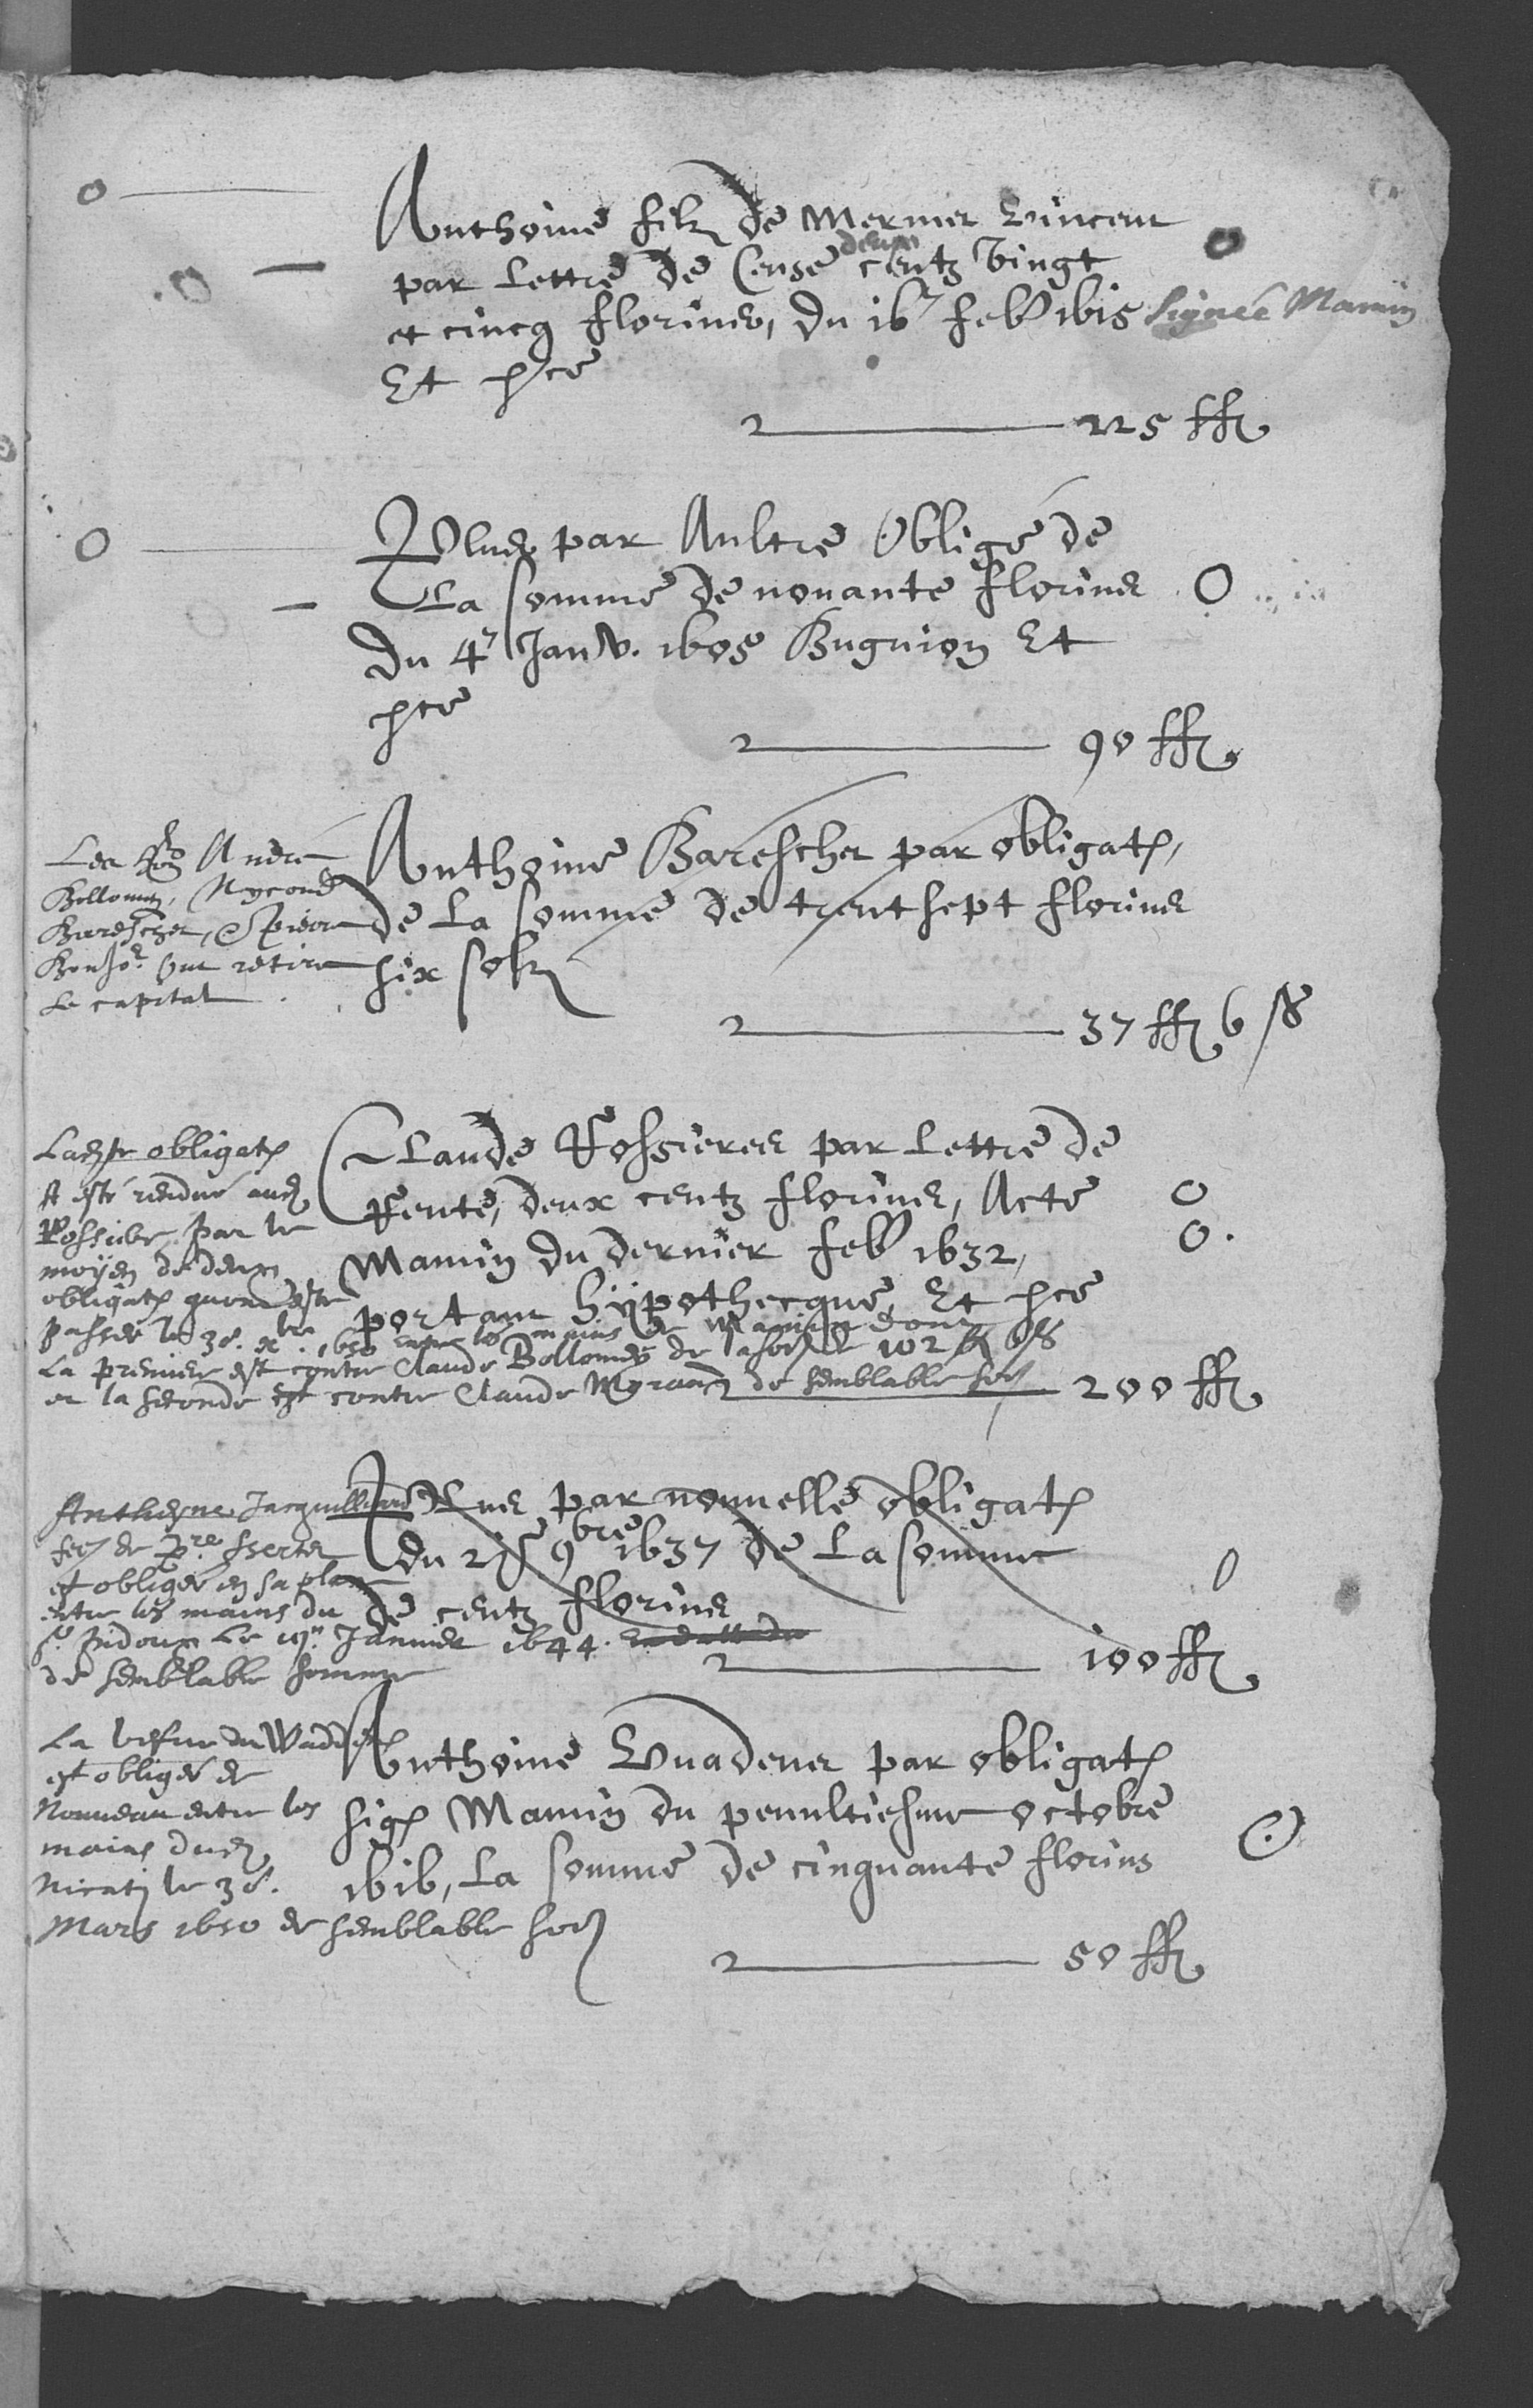 Anthoine filz de Mermet Vincent
par Lettre de Cense deux centz vingt
et cincq florins, du 16 feb 1615 Signée Mamin
Et
225 ff
Plus par Aultre Obligé de
La somme de nonante florins
du 4 Janv. 1605 Bugnion Et
90 ff
Les André
Bollomey, Nycond
Barescher, & Pierre
ont retiré
Le capital
Anthoine Barescher par obligat,
de La somme de trentsept florins
six solz
37 ff 6 s
obligat
a esté rendue aud
Rossier par le
moyen de deux
obligat
passées le 30. x bre. 1650 entre les mains de Mamin dont
La premiere est contre Claude Bollomey de 102 ff 6 s
et la seconde est contre Claude de semblable
Claude Rossieres par Lettre de
Rente, deux centz florins, Acte
Mamin du dernier feb 1632,
portant hÿpothecque, Et
200 ff
Anthoyne Jacquilliard
de
est obligé en sa place
entre les mains du
Le Janvier 1644.
de semblable somme
Plus par nouvelle obligat
du 9bre 1637 de La somme
de centz florins
100 ff
La vefve du Wadens
est obligée de
Nouveau entre les
mains dud
le 30.
Mars 1650 de semblable
Anthoine Vuadens par obligat
sig Mamin du penultiesme octobre
1616, La somme de cinquante florins
50 ff